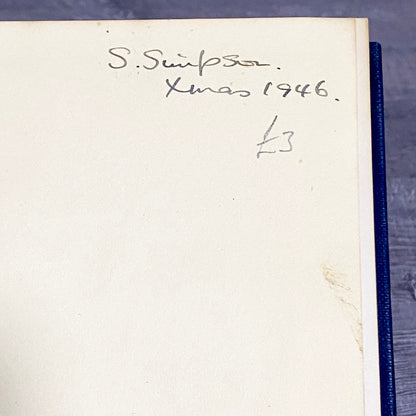 S. Simpson.
Xmas 1946.
£3